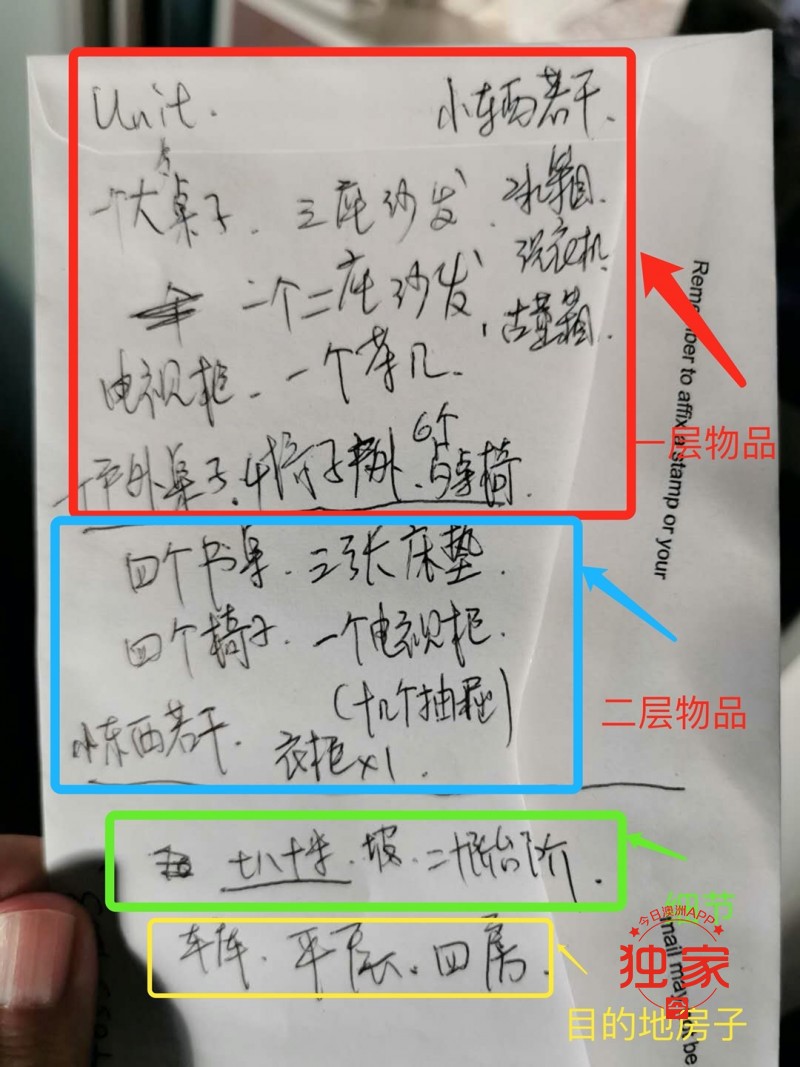 Unit.
小东西若干.
一个大桌子. 三座沙发. 冰箱.
洗衣机
一个二座沙发, 古董箱.
电视柜. 一个茶几.
一层物品
6个
一个户外桌子. 椅子户外. 桌椅.
四个书桌. 三张床垫.
四个椅子. 一个电视柜.
(十几个抽屉)
二层物品
小东西若干. 衣柜x1.
七八十米. 坡. 二十阶台阶.
细节
车库. 平层. 四房.
目的地房子
今日澳洲APP
独家
Remember to affix a stamp or your
mail may be